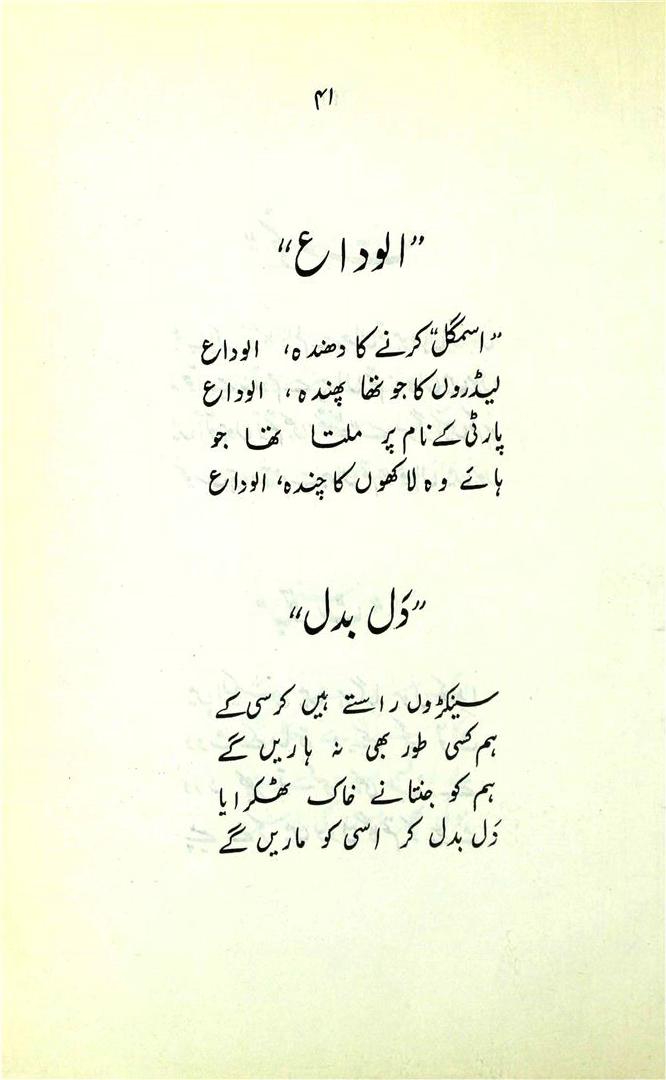 ۴۱
”الوداع“
”اسمگل“ کرنے کا دھندہ، الوداع
لیڈروں کا جو تھا پھندہ، الوداع
پارٹی کے نام پر ملتا تھا جو
ہائے وہ لاکھوں کا چندہ، الوداع
”دَل بدل“
سینکڑوں راستے ہیں کرسی کے
ہم کسی طور بھی نہ ہاریں گے
ہم کو جنتا نے خاک ٹھکرایا
دَل بدل کر اسی کو ماریں گے